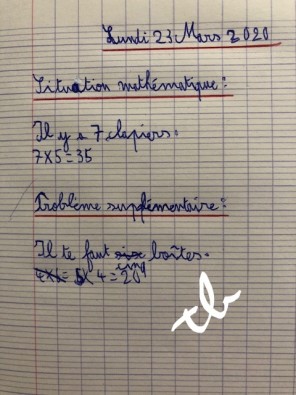 Lundi 23 Mars 2020
Situation mathématique :
Il y a 7 clapiers.
7x5=35
Problème supplémentaire :
Il te faut cinq boîtes.
5x4=20
tb